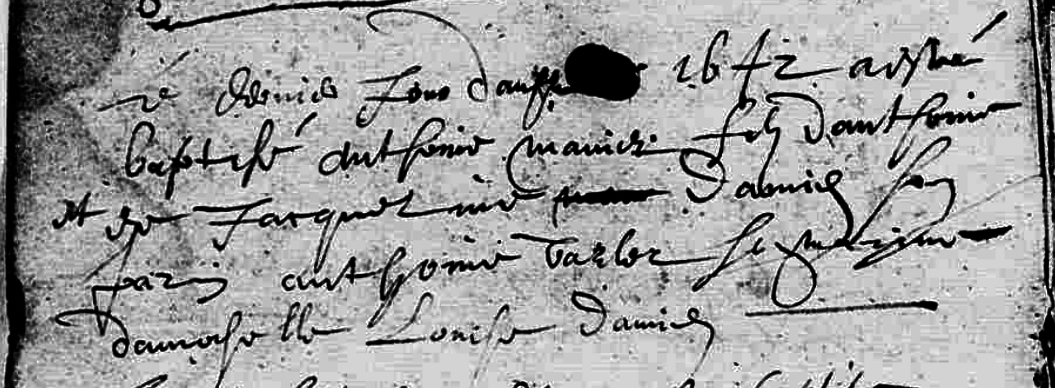 Le dernier Jour 1642 a esté
baptisé anthoine fils danthoine
et de Jacqueline Daniel son
parin anthoine sa marine
damoiselle Louise Daniel